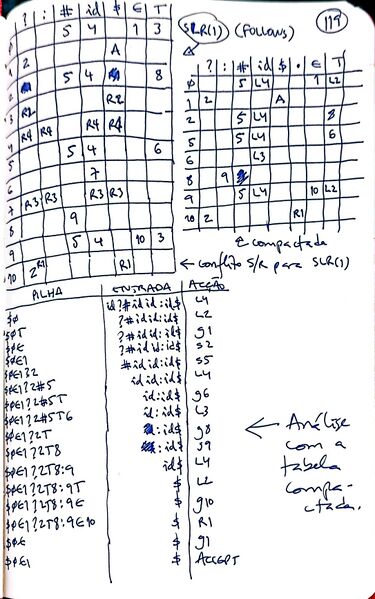 ? : # id $ E T
SLR(1) (Follows) 118
0 5 4 1 3
1 2 A
5 4 8
3 R2 R2
4 R4 R4 R4 R4
5 5 4 6
6 7
7 R3 R3 R3 R3
8 9
9 5 4 10 3
10 2 R1 R1
? : # id $ • E T
0 5 L4 1 L2
1 2 A
2 5 L4 8
5 5 L4 6
6 L3
8 9
9 5 L4 10 L2
10 2 R1
compactada
← conflito S/R para SLR(1)
PILHA ENTRADA ACÇÃO
$0 id?#idid:id$ L4
$0T ?#idid:id$ L2
$0E ?#idid:id$ g1
$0E1 ?#idid:id$ s2
$0E1?2 #idid:id$ s5
$0E1?2#5 idid:id$ L4
$0E1?2#5T id:id$ g6
$0E1?2#5T6 id:id$ L3
$0E1?2T :id$ g8
$0E1?2T8 :id$ s9
$0E1?2T8:9 id$ L4
$0E1?2T8:9T $ L2
$0E1?2T8:9E $ g10
$0E1?2T8:9E10 $ R1
$0E $ g1
$0E1 $ ACCEPT
← Análise
com a
tabela
compa-
ctada.